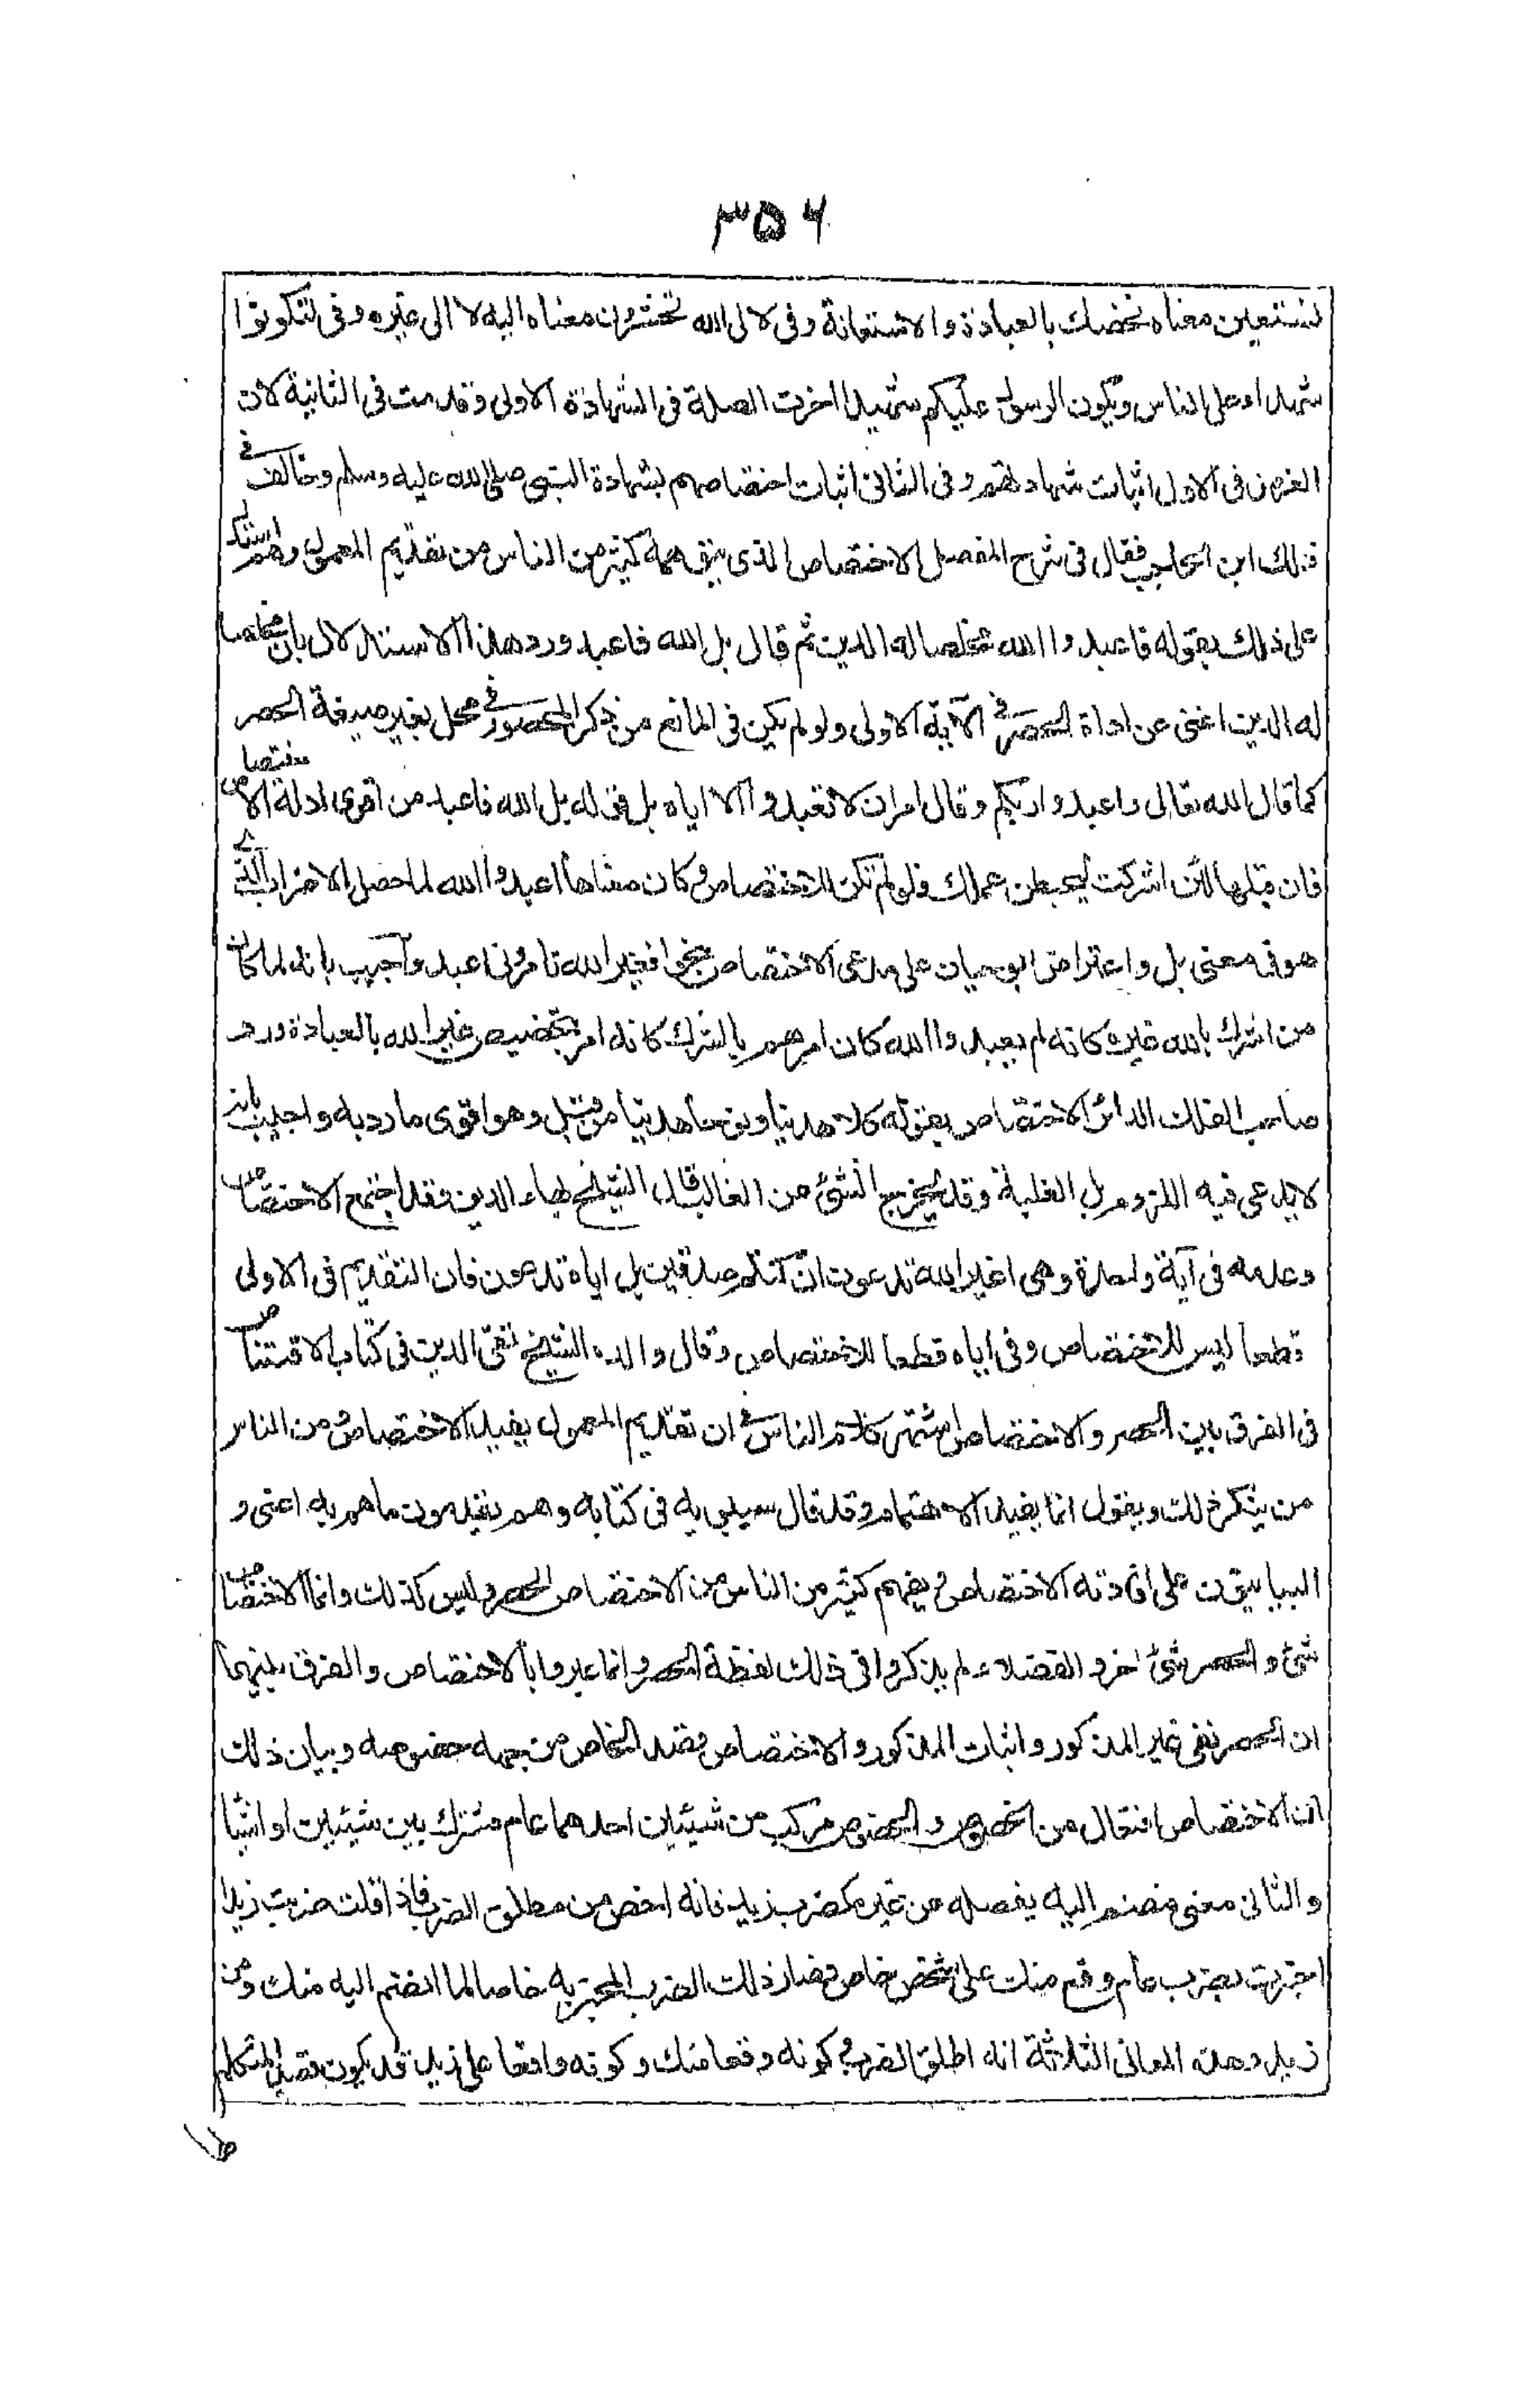 ٣٥٦
نستعين معناه نخصك بالعبادة والاستعانة وفى لالى الله تحشرون معناه اليه لا الى غيره وفى لتكونوا
شهداء على الناس ويكون الرسول عليكم شهيدا اخرت الصلة فى الشهادة الاولى وقدمت فى الثانية لان
الغرض فى الاول اثبات شهادتهم وفى الثانى اثبات اختصاصهم بشهادة النبى صلى الله عليه وسلم وخالف فى
ذلك ابن الحاجب فقال فى شرح المفصل الاختصاص الذى يتوهمه كثير من الناس من تقديم المعمول وهم واستدل
على ذلك بقوله فاعبدوا الله مخلصا له الدين ثم قال بل الله فاعبد ورد هذا الاستدلال بان مخلصا
له الدين اغنى عن اداة الحصر فى الآية الاولى ولو لم يكن فى المانع من ذكر المحصور فى محل بغير صيغة الحصر
كما قال الله تعالى واعبدوا ربكم وقال امر ان لا تعبدوا الا اياه بل قوله بل الله فاعبد من اقوى ادلة الاختصاص
فان قبلها لئن اشركت ليحبطن عملك فلو لم تكن للاختصاص وكان معناها اعبدوا الله لما حصل الاضراب الذى
هو فى معنى بل واعترض ابو حيان على مدعى الاختصاص بنحو افغير الله تامرونى اعبد واجيب بانه لما كان
من اشرك بالله غيره كانه لم يعبدوا الله كان امرهم بالشرك كانه امر بتخصيص غير الله بالعبادة ورد
صاحب الفلك الدائر الاختصاص بقوله كلا هدينا ونوحا هدينا من قبل وهو اقوى ما رد به واجيب بانه
لا يدعى فيه اللزوم بل الغلبة وقد يخرج الشئ عن الغالب قال الشيخ بهاء الدين وقد اجتمع الاختصاص
وعدمه فى آية واحدة وهى اغير الله تدعون ان كنتم صدقين بل اياه تدعون فان التقديم فى الاولى
قطعا ليس للاختصاص وفى اياه قطعا للاختصاص وقال والده الشيخ تقى الدين فى كتاب الاقتناص
فى الفرق بين الحصر والاختصاص اشتهر كلام الناس فى ان تقديم المعمول يفيد الاختصاص ومن الناس
من ينكر ذلك ويقول انما يفيد الاهتمام وقد قال سيبويه فى كتابه وهم يقدمون ما هم به اعنى و
البيانيون على افادته الاختصاص ويفهم كثير من الناس من الاختصاص الحصر وليس كذلك وانما الاختصاص
شئ والحصر شئ اخر والفضلاء لم يذكروا فى ذلك لفظة الحصر وانما عبروا بالاختصاص والفرق بينهما
ان الحصر نفى غير المذكور واثبات المذكور والاختصاص قصد الخاص من جهه خصوصه وبيان ذلك
ان الاختصاص افتعال من الخصوص والخصوص مركب من شيئين احدهما عام مشترك بين شيئين او اشيا
والثانى معنى منضم اليه يفصله عن غيره كضرب زيد فانه اخص من مطلق الضرب فاذا قلت ضربت زيدا
اخبرت بضرب عام وقع منك على شخص خاص فصار ذلك الضرب المخبر به خاصا لما انضم اليه منك ومن
زيد وهذه المعانى الثلاثة انه اطلق الضرب وكونه وقعا منك وكونه واقعا على زيد قد يكون قصد المتكلم